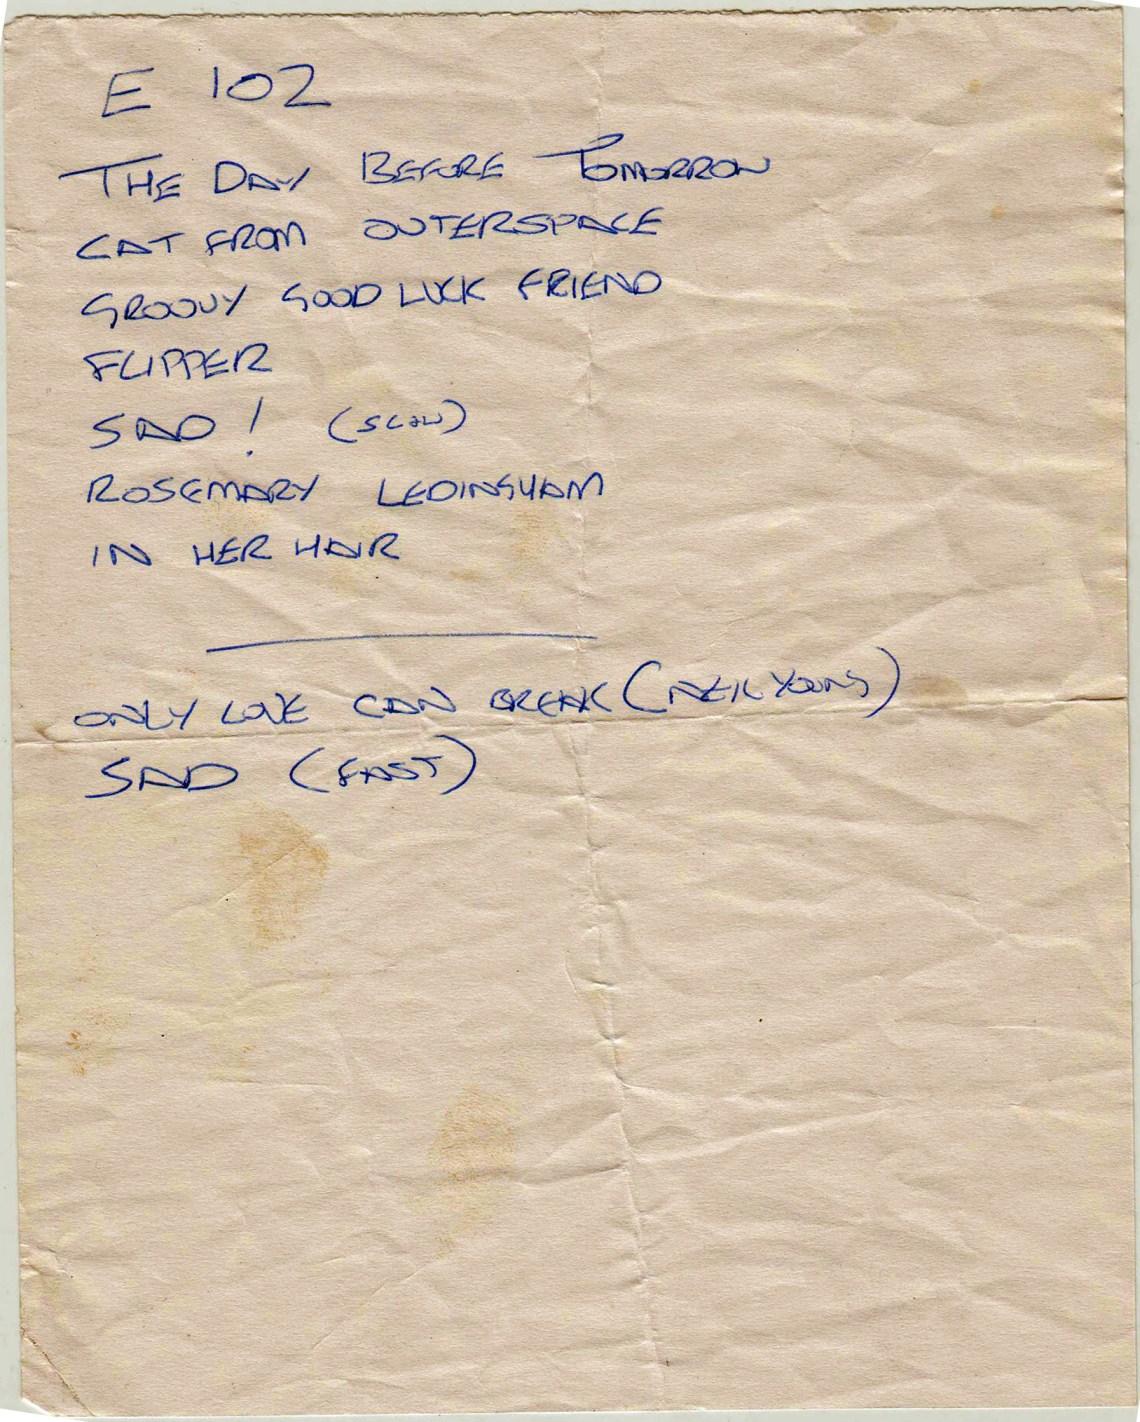 E 102
THE DAY BEFORE TOMORROW
CAT FROM OUTERSPACE
GROOVY GOOD LUCK FRIEND
FLIPPER
SAD! (SLOW)
ROSEMARY LEDINGHAM
IN HER HAIR
ONLY LOVE CAN BREAK (NEIL YOUNG)
SAD (FAST)